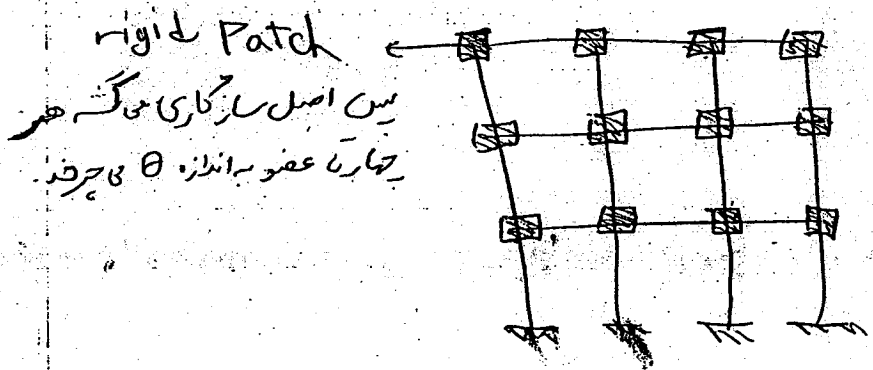 rigid Patch
پس اصل سازگاری می‌گه هر
چهارتا عضو به اندازه θ می‌چرخد.